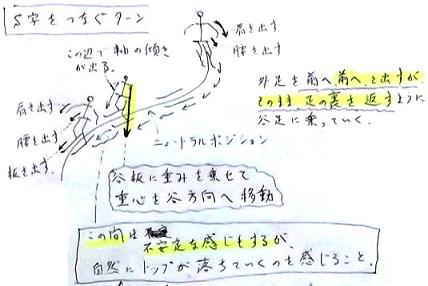 S字をつなぐターン
この辺で軸の傾きが出る。
肩を出す
腰を出す
外足を前へ前へと出すが
そのまま足の裏を返すように
谷足に乗っていく。
肩を出す
腰を出す
板を出す。
ニュートラルポジション
谷板に重みを乗せて
重心を谷方向へ移動
この間は
不安定な感じもするが、
自然にトップが落ちていくのを感じること。